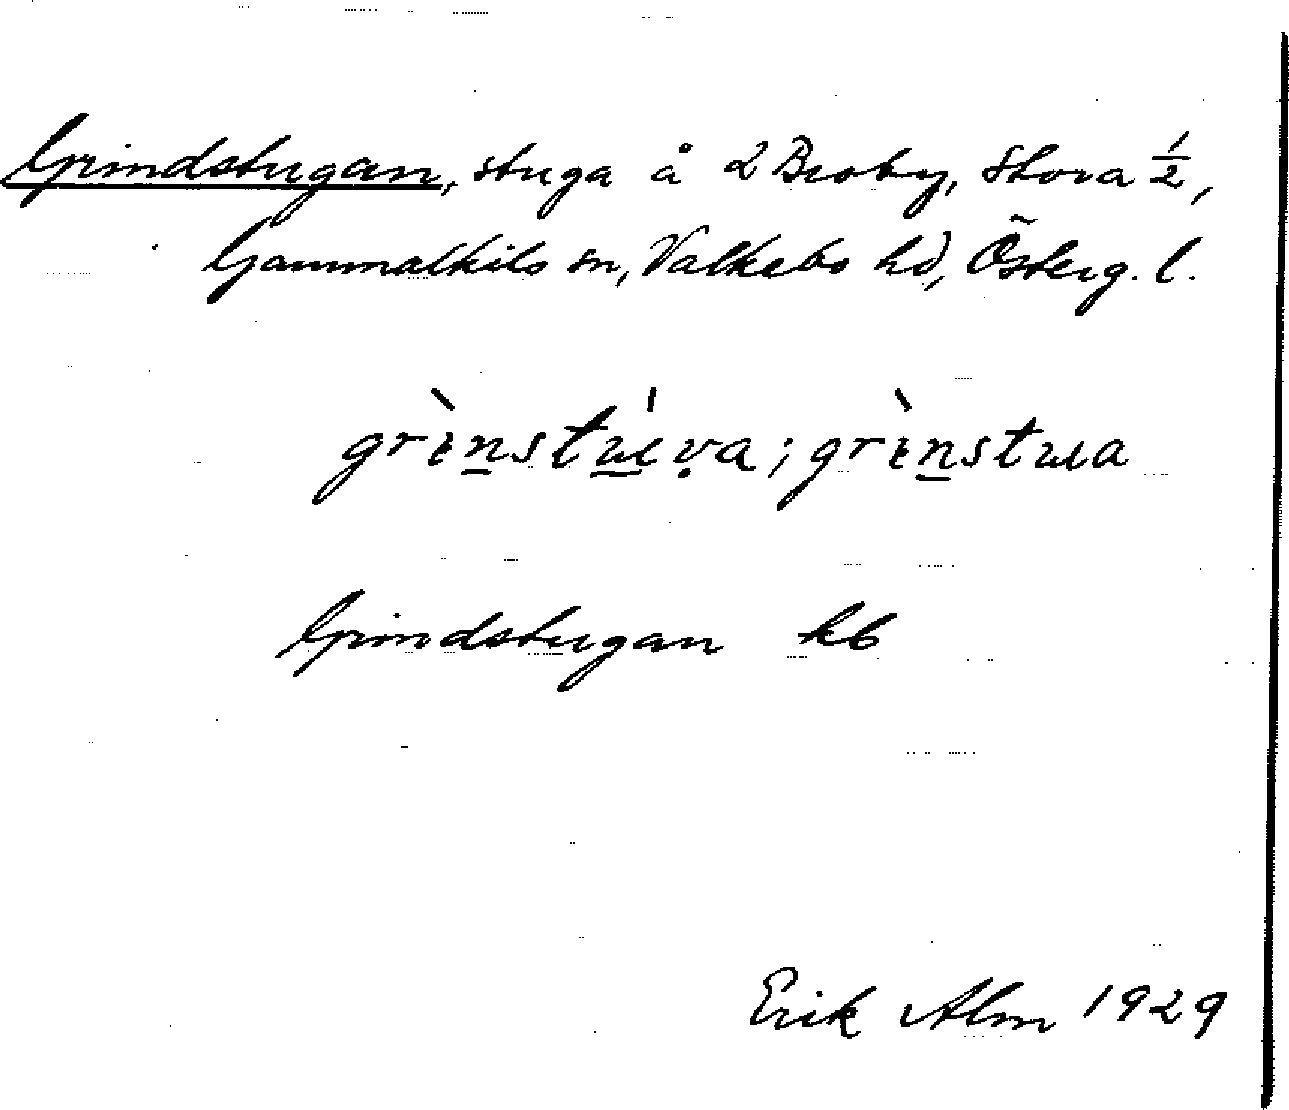 Grindstugan, stuga å 2 Broby, Stora 1/2,
Gammalkils sn, Valkebo hd, Österg. l.
Grindstugan kb
Erik Alm 1929